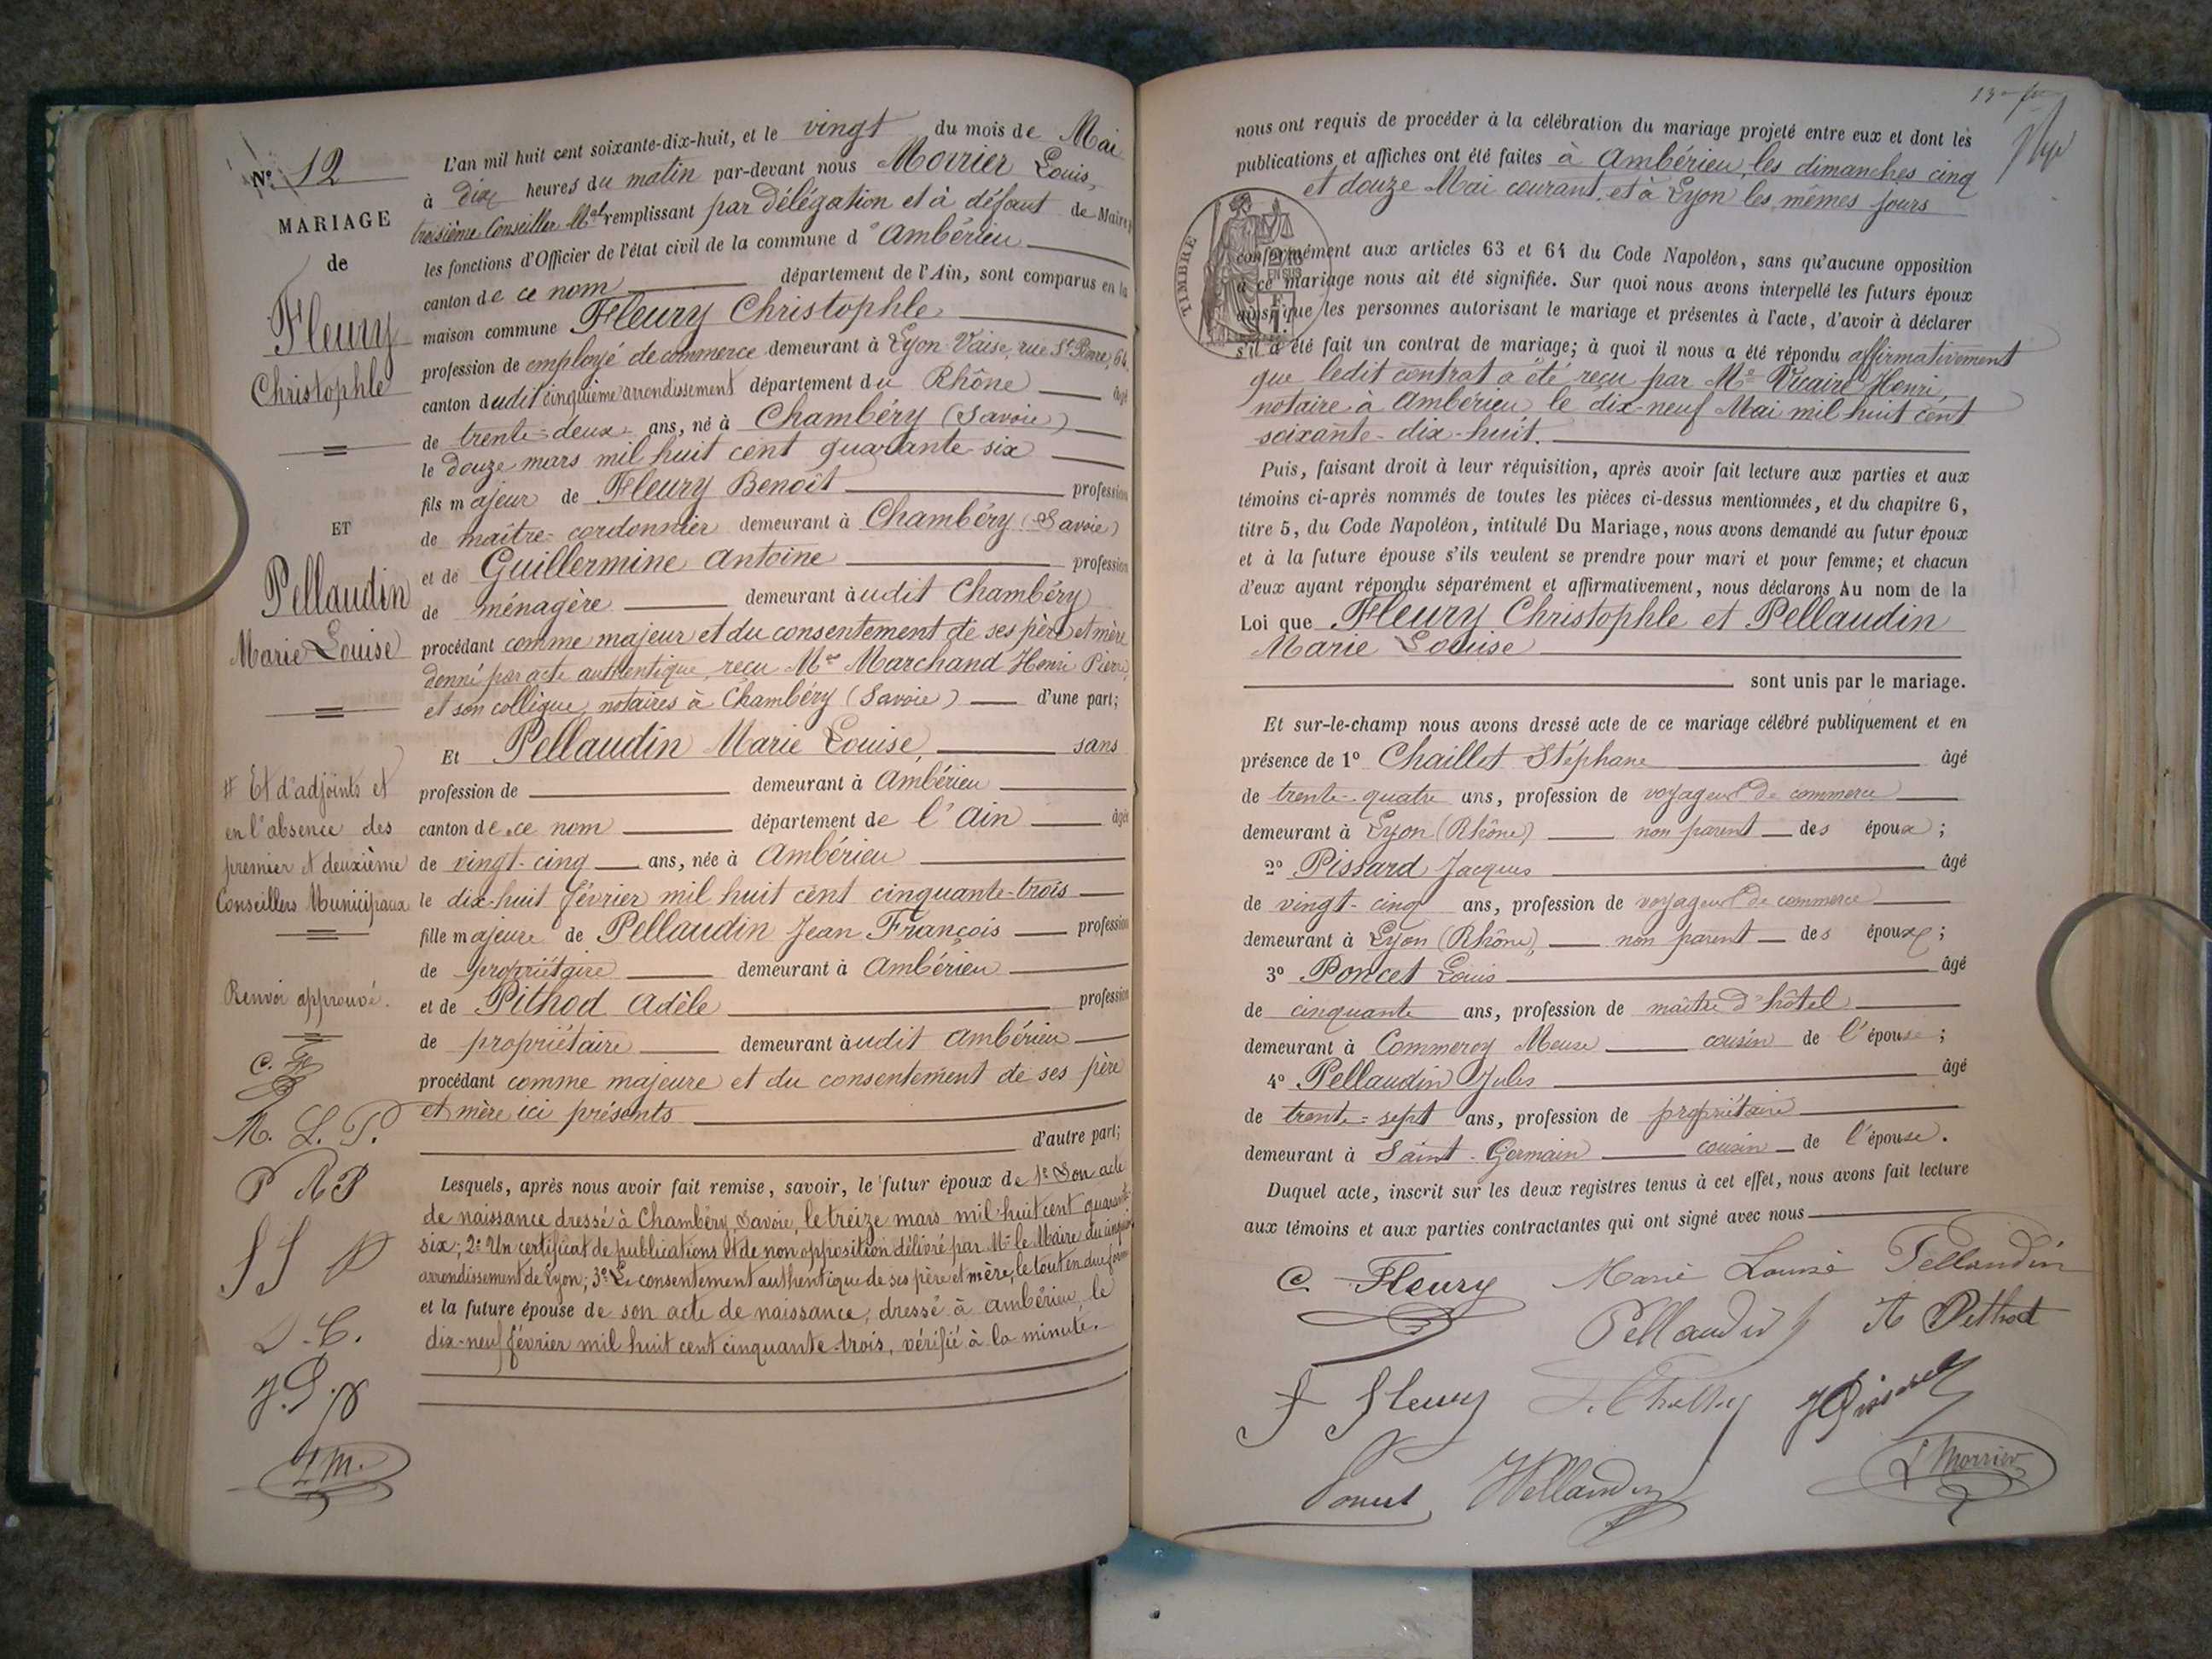 N° 12
MARIAGE
de
Fleury
Christophle
ET
Pellaudin
Marie Louise
# Et d'adjoints et
en l'absence des
premier et deuxième
Conseillers Municipaux
Renvoi approuvé.
C. F.
M. L. P.
P AP
J. P.
L M.
L'an mil huit cent soixante-dix-huit, et le vingt du mois de Mai
à dix heures du matin par-devant nous Moirier Louis,
troisième Conseiller Mal remplissant par délégation et à défaut de Maire #
les fonctions d'Officier de l'état civil de la commune d'Ambérieu
canton de ce nom département de l'Ain, sont comparus en la
maison commune Fleury Christophle
profession de employé de commerce demeurant à Lyon-Vaise, rue St Pierre, 64
canton dudit cinquième arrondissement département du Rhône âgé
de trente-deux ans, né à Chambéry (Savoie)
le douze mars mil huit cent quarante-six
fils majeur de Fleury Benoît profession
de maître-cordonnier demeurant à Chambéry (Savoie)
et de Guillermine Antoine profession
de ménagère demeurant audit Chambéry
procédant comme majeur et du consentement de ses père et mère
donné par acte authentique, reçu Me Marchand Henri Pierre,
et son collègue, notaires à Chambéry (Savoie) d'une part;
Et Pellaudin Marie Louise, sans
profession de demeurant à Ambérieu
canton de ce nom département de l'Ain âgée
de vingt-cinq ans, née à Ambérieu
le dix-huit février mil huit cent cinquante-trois
fille majeure de Pellaudin Jean François profession
de propriétaire demeurant à Ambérieu
et de Pithod Adèle profession
de propriétaire demeurant audit Ambérieu
procédant comme majeure et du consentement de ses père
et mère ici présents
d'autre part;
Lesquels, après nous avoir fait remise, savoir, le futur époux de 1° Son acte
de naissance dressé à Chambéry, Savoie, le treize mars mil huit cent quarante-
six; 2° Un certificat de publications et de non opposition délivré par Mr le Maire du cinquième
arrondissement de Lyon; 3° Le consentement authentique de ses père et mère, le tout en due forme
et la future épouse de son acte de naissance, dressé à Ambérieu le
dix-neuf février mil huit cent cinquante-trois, vérifié à la minute.
nous ont requis de procéder à la célébration du mariage projeté entre eux et dont les
publications et affiches ont été faites à Ambérieu, les dimanches cinq
et douze Mai courant, et à Lyon les mêmes jours
TIMBRE
conformément aux articles 63 et 64 du Code Napoléon, sans qu'aucune opposition
à ce mariage nous ait été signifiée. Sur quoi nous avons interpellé les futurs époux
ainsi que les personnes autorisant le mariage et présentes à l'acte, d'avoir à déclarer
s'il a été fait un contrat de mariage; à quoi il nous a été répondu affirmativement
que ledit contrat a été reçu par Me Vicaire Henri,
notaire à Ambérieu, le dix-neuf Mai mil huit cent
soixante-dix-huit.
Puis, faisant droit à leur réquisition, après avoir fait lecture aux parties et aux
témoins ci-après nommés de toutes les pièces ci-dessus mentionnées, et du chapitre 6,
titre 5, du Code Napoléon, intitulé Du Mariage, nous avons demandé au futur époux
et à la future épouse s'ils veulent se prendre pour mari et pour femme; et chacun
d'eux ayant répondu séparément et affirmativement, nous déclarons Au nom de la
Loi que Fleury Christophle et Pellaudin
Marie Louise
sont unis par le mariage.
Et sur-le-champ nous avons dressé acte de ce mariage célébré publiquement et en
présence de 1° Chaillet Stéphane âgé
de trente-quatre ans, profession de voyageur de commerce
demeurant à Lyon (Rhône) non parent des époux;
2° Pissard Jacques âgé
de vingt-cinq ans, profession de voyageur de commerce
demeurant à Lyon (Rhône), non parent des époux;
3° Poncet Louis âgé
de cinquante ans, profession de maître d'hôtel
demeurant à Commercy Meuse cousin de l'épouse;
4° Pellaudin Jules âgé
de trente-sept ans, profession de propriétaire
demeurant à Saint-Germain cousin de l'épouse.
Duquel acte, inscrit sur les deux registres tenus à cet effet, nous avons fait lecture
aux témoins et aux parties contractantes qui ont signé avec nous
C. Fleury Marie Louise Pellaudin
Pellaudin A Pithod
f fleury
Poncet Pellaudin